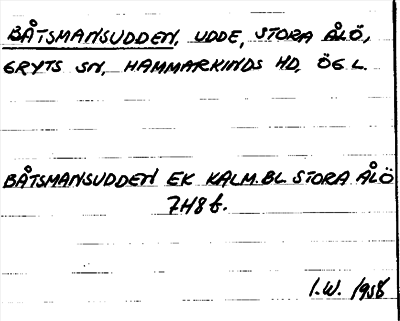 BÅTSMANSUDDEN, UDDE, STORA ÅLÖ,
GRYTS SN, HAMMARKINDS HD, ÖG L.
BÅTSMANSUDDEN EK KALM.BL STORA ÅLÖ
7H8f.
I.W. 1958